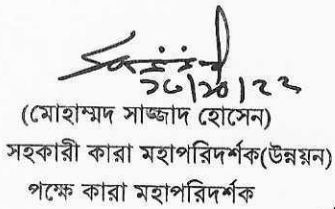 (মোহাম্মদ সাজ্জাদ হোসেন)
সহকারী কারা মহাপরিদর্শক(উন্নয়ন)
পক্ষে কারা মহাপরিদর্শক